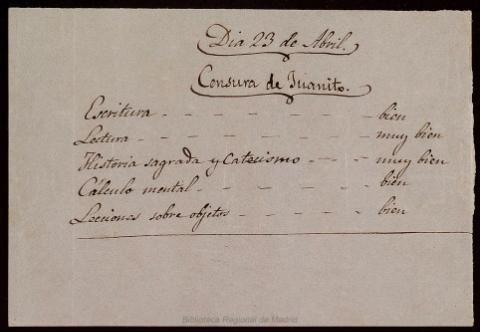 Dia 23 de Abril.
Censura de Juanito.
Escritura - - - - - - - bien
Lectura - - - - - - - muy bien
Historia sagrada y Catecismo - - - muy bien
Cálculo mental - - - - - - bien
Lecciones sobre objetos - - - - - bien
Biblioteca Regional de Madrid